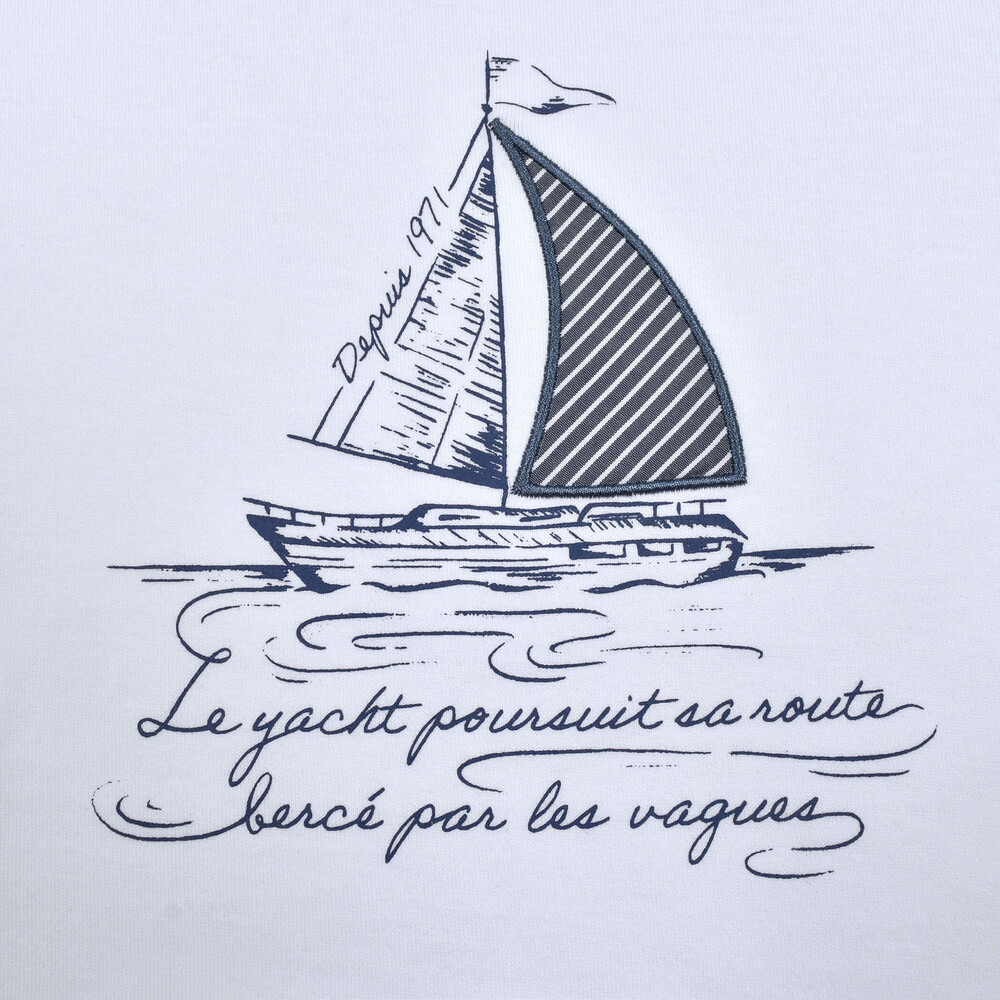 Depuis 1971
Le yacht poursuit sa route
bercé par les vagues